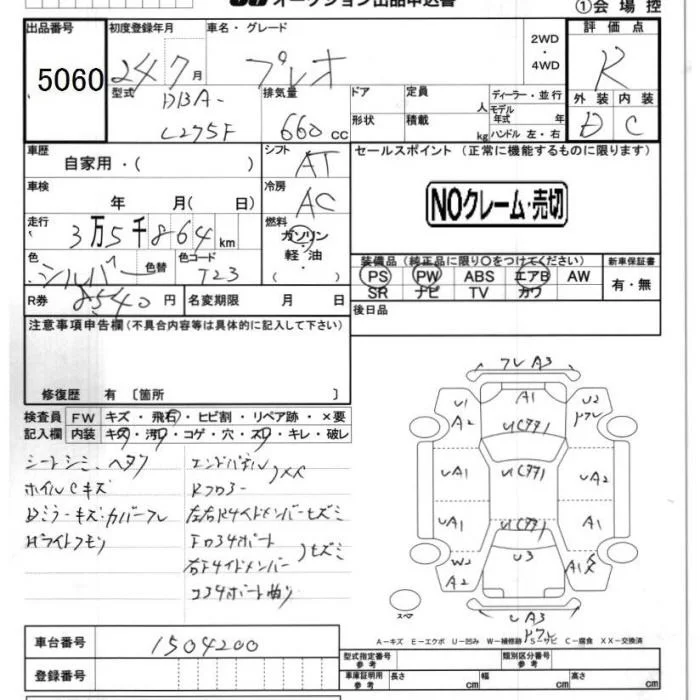 オークション出品申込書
①会場控
出品番号 初度登録年月 車名・グレード 評価点
5060 24 7月 プレオ 2WD ・ 4WD R
型式 DBA- L275F 排気量 660 cc ドア 形状 定員 人 積載 kg ディーラー・並行 モデル年式 年 ハンドル 左・右 外装 内装
D C
車歴 自家用・( ) シフト AT セールスポイント (正常に機能するものに限ります)
車検 年 月( 日) 冷房 AC
NOクレーム・売切
走行 3万5千864 km 燃料 ガソリン・軽油
色 シルバー 色替 色コード T23
装備品 (純正品に限り○をつけてください) 新車保証書
PS PW ABS エアB AW 有・無
SR ナビ TV カワ
R券 8540円 名変期限 月 日 後日品
注意事項申告欄(不具合内容等は具体的に記入して下さい)
修復歴 有 〔箇所 〕
検査員 FW キズ・飛石・ヒビ割・リペア跡・×要
記入欄 内装 キズ・汚レ・コゲ・穴・スレ・キレ・破レ
シートシミ、ヘタリ
ホイルCキズ
Dミラーキズ・カバーワレ
Hライトクモリ
エンドパネル
Rフロアー
左右Rサイドメンバーヒズミ
右Fサイドメンバー ヒズミ
ワレ A3
U1 A1 U2
A2 U(アア) ワレ
UA1 U(アア) UA2
UA1 U(アア) A1
W2 U3 A1
A2
スペ UA3
ワレ
A-キズ E-エクボ U-凹み W-補修跡 S-サビ C-腐食 XX-交換済
車台番号 1504200
型式指定番号 参考 類別区分番号 参考
登録番号 車庫証明用 参考 長さ cm 幅 cm 高さ cm